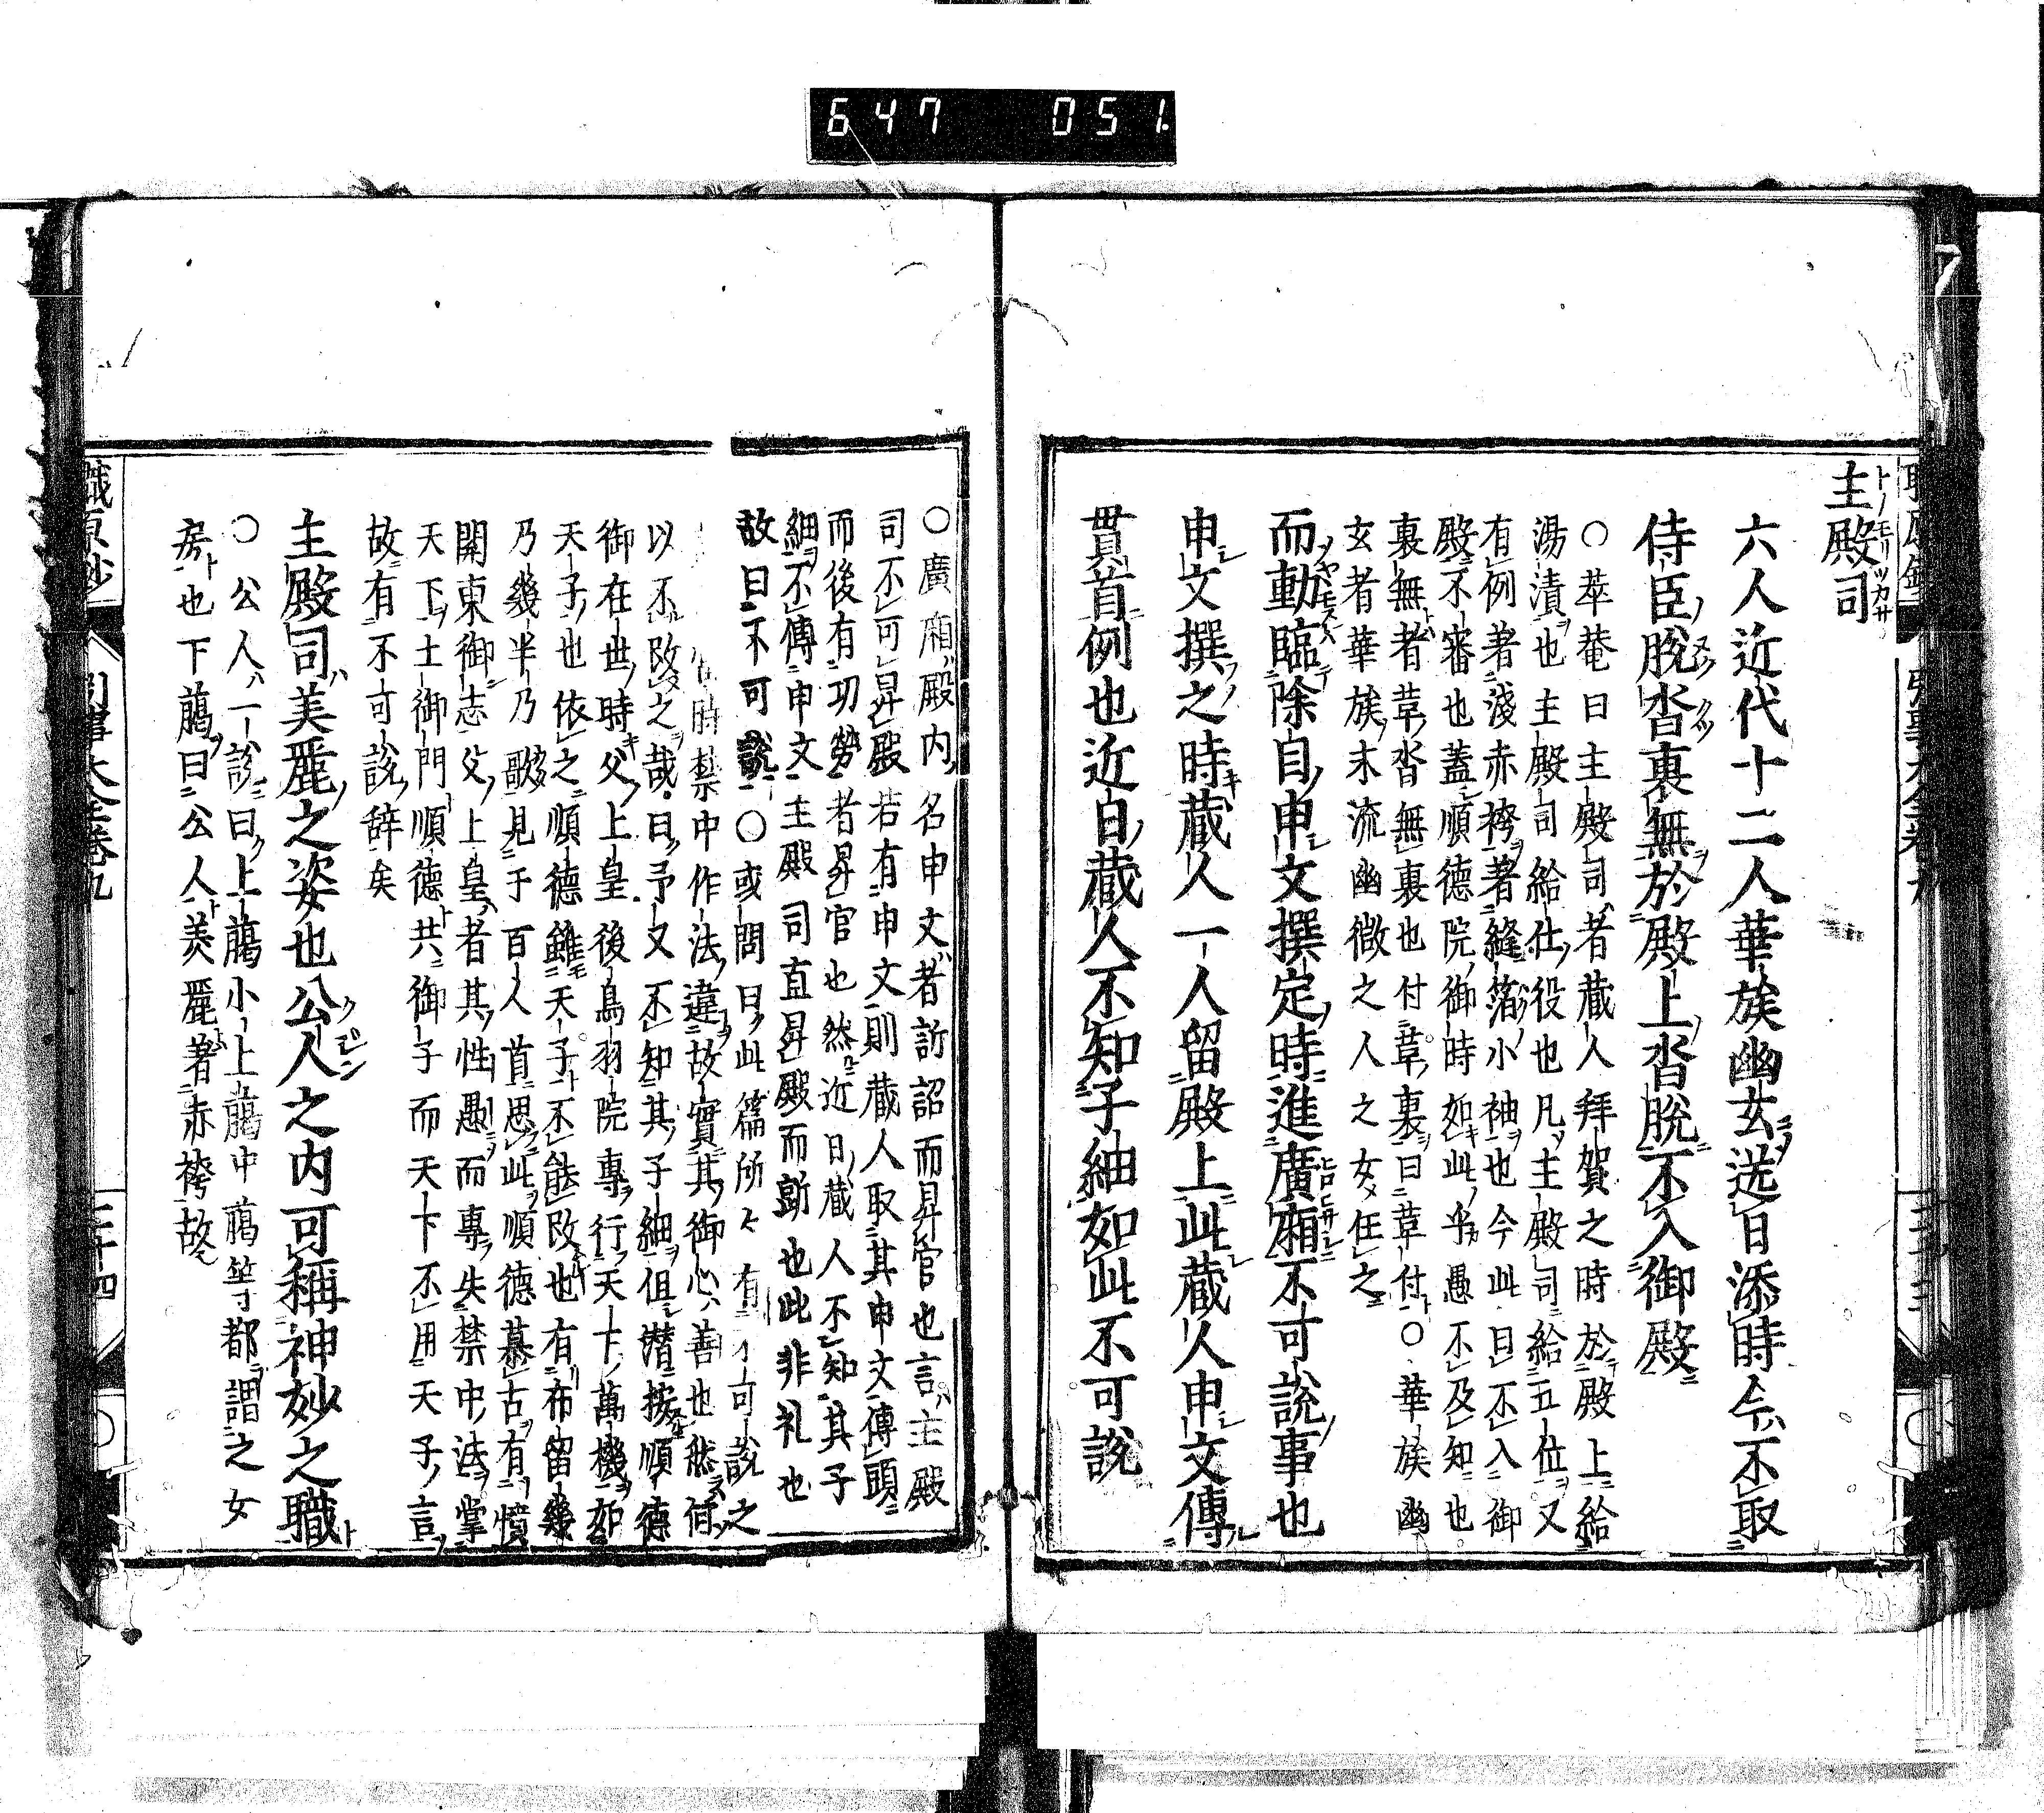 647 051
主殿司
六人近代十二人華族幽玄送日添時今不取
侍臣脫沓裏無於殿上沓脫不入御殿
○萃菴曰主殿司者蔵人拜賀之時於殿上給
湯漬也主殿司給仕役也凡主殿司給五位又
有例著淺赤袴著縫箔小袖也今此日不入御
殿不審也蓋順德院御時如此乎愚不及知也
裏無者草沓無裏也付草裏曰草付○華族幽
玄者華族末流幽微之人之女任之
而動臨除目申文撰定時進廣廂不可說事也
申文撰之時蔵人一人留殿上此蔵人申文傳
貫首例也近日蔵人不知子細如此不可說
○廣廂殿内名申文者訢詔而昇官也言主殿
司不可昇殿若有申文則蔵人取其申文傳頭
而後有功勞者昇官也然近日蔵人不知其子
細不傳申文主殿司直昇殿而訢也此非礼也
故曰不可說○或問曰此篇所々有不可說之
時禁中作法違故實其御心善也然何
以不改之哉曰予又不知其子細但潜按順德
御在世時父上皇後鳥羽院專行天下萬機如
天子也依之順德雖天子不能改也有布留幾
乃幾半乃歌見于百人首思此順德慕古有憤
關東御志父上皇者其性愚而專失禁中法掌
天下土御門順德共御子而天下不用天子言
故有不可說辞矣
主殿司美麗之姿也公人之内可稱神妙之職
○公人一說曰上﨟小上﨟中﨟等都謂之女
房也下﨟曰公人美麗著赤袴故
職原鈔 引事大全卷九 二十四